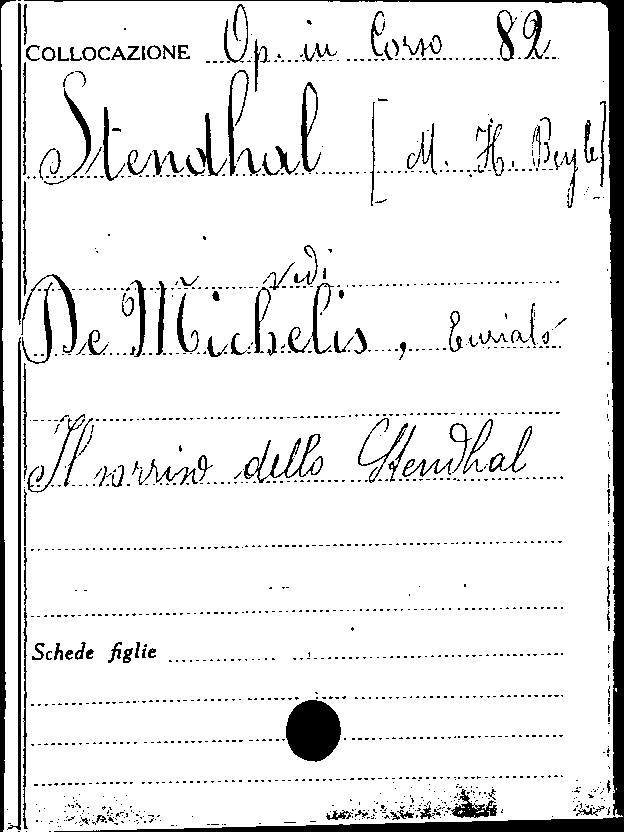 COLLOCAZIONE Op. in Corso 82
Stendhal [M. H. Beyle]
vedi
De Michelis, Eurialo
Il sorriso dello Stendhal
Schede figlie